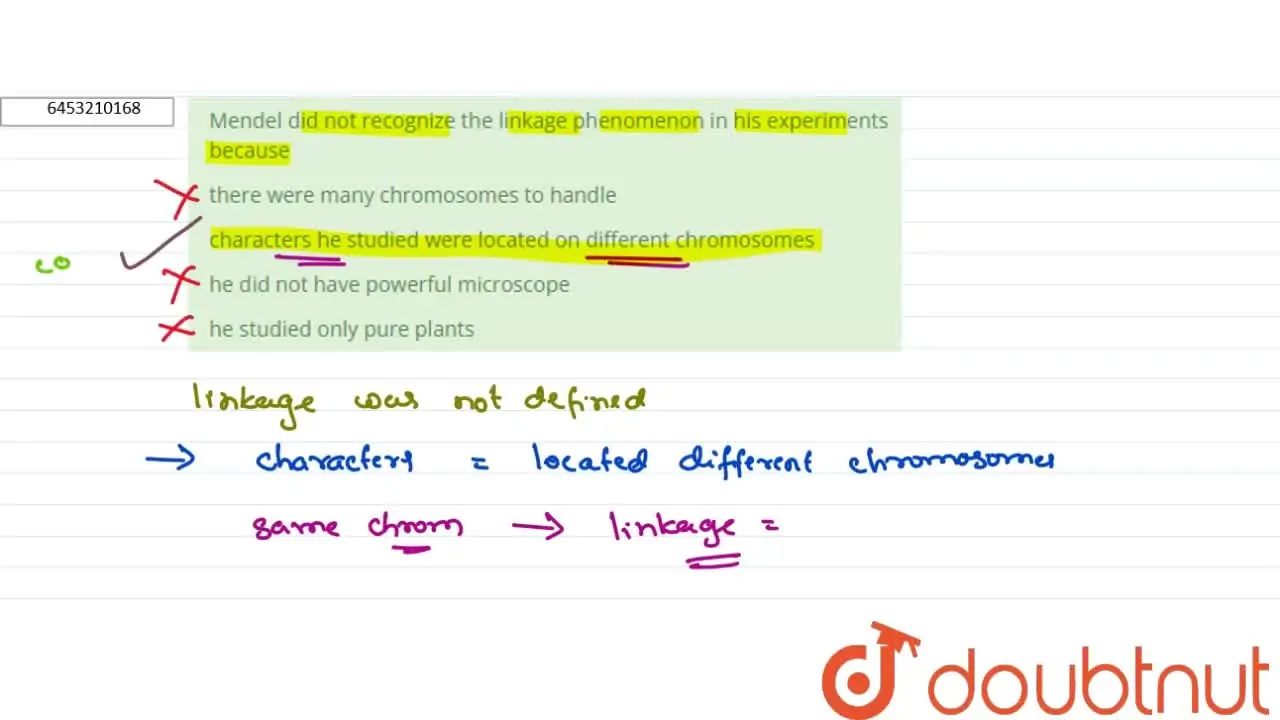 6453210168
Mendel did not recognize the linkage phenomenon in his experiments
because
there were many chromosomes to handle
characters he studied were located on different chromosomes
co
he did not have powerful microscope
he studied only pure plants
linkage was not defined
→ characters = located different chromosomes
same chrom → linkage =
doubtnut